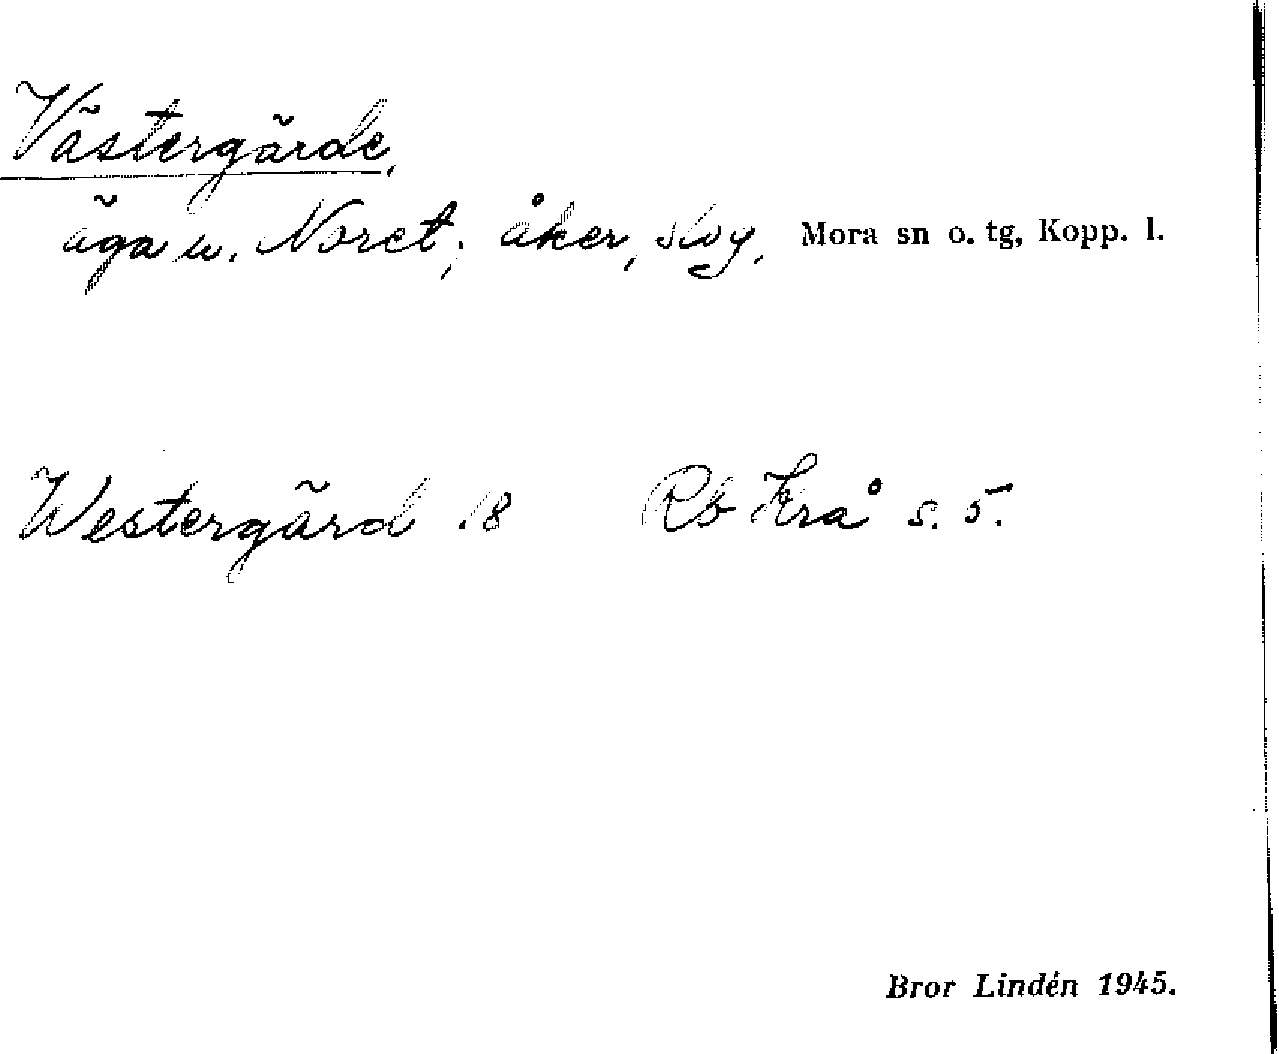 Västergärde,
äga u. Noret; åker, slog, Mora sn o. tg, Kopp. l.
Westergärd 18 Rb Krå s. 5.
Bror Lindén 1945.